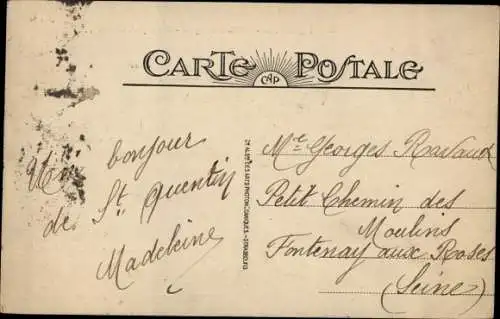 CARTE POSTALE
CAP
Un bonjour
de St Quentin
Madeleine
Me Georges Ravaux
Petit Chemin des
Moulins
Fontenay aux Roses
(Seine)